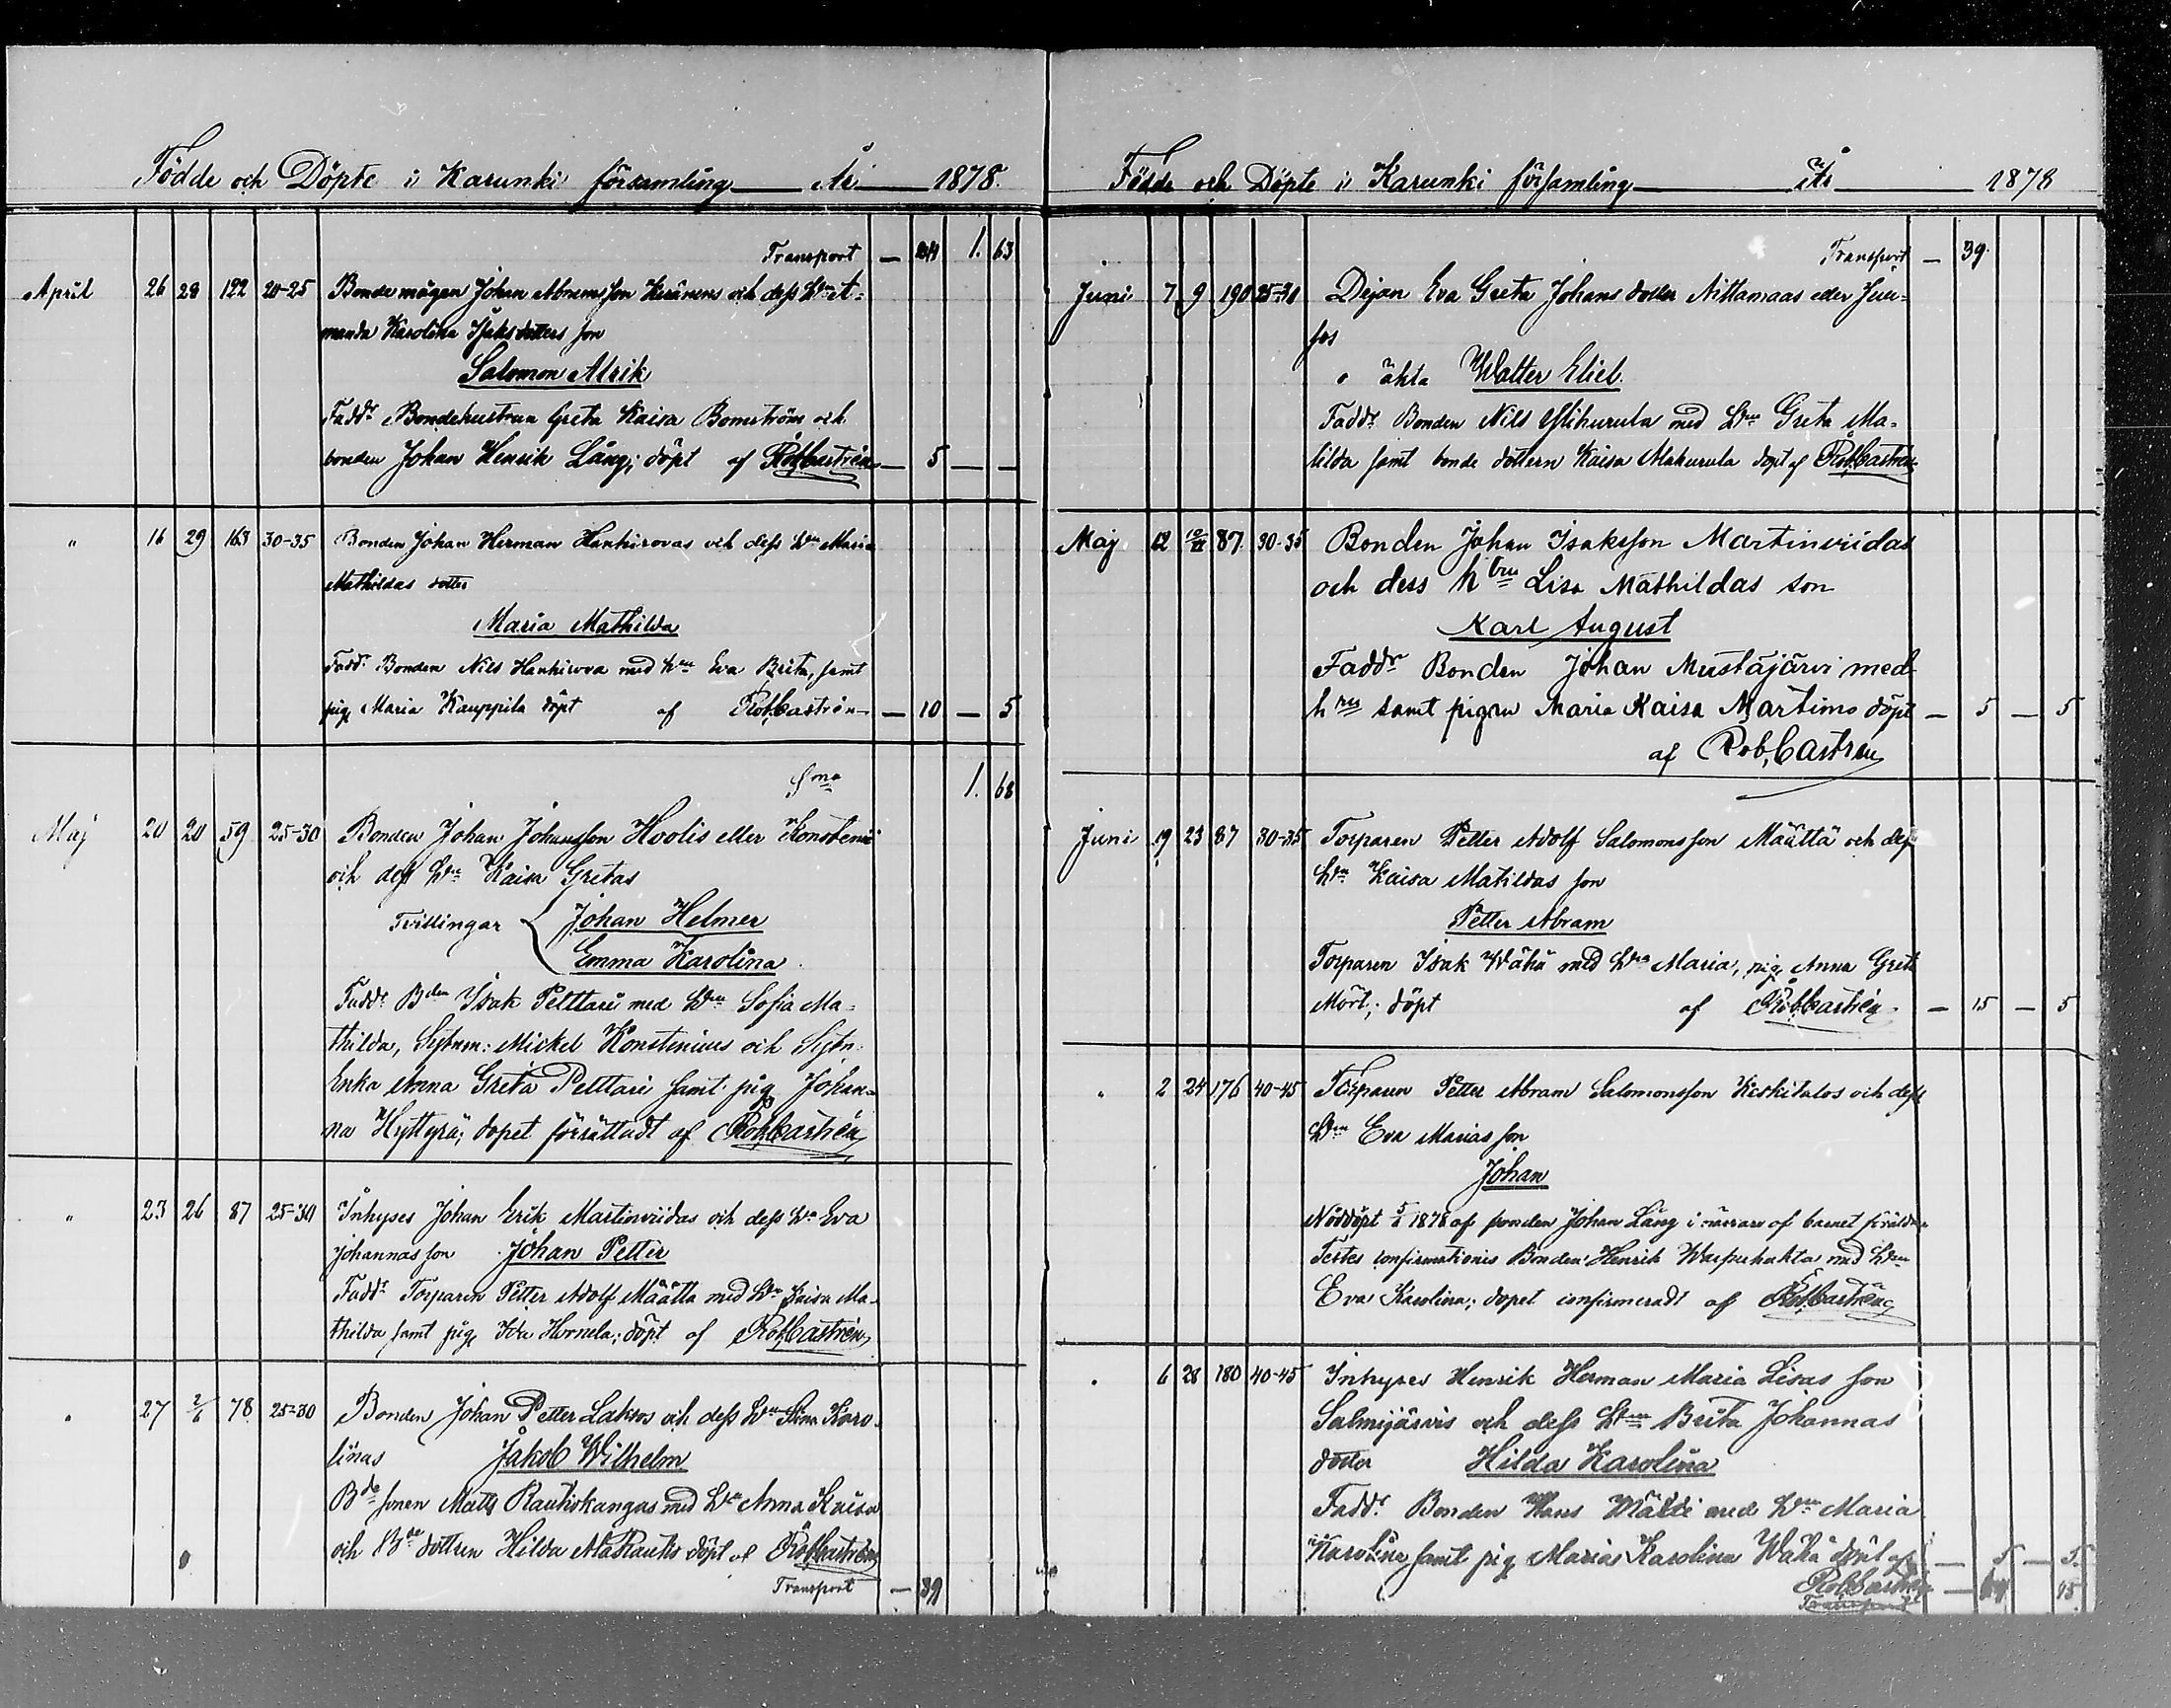 Födde och Döpte i Karunki församling År 1878.
Transport — 1. 63
April 26 28 122 20-25 Bonde mågen Johan Abramsson Keränens och dess Hru A-
manda Karolina Isaksdotters son
Salomon Alrik
Faddr Bondehustrun Greta Kaisa Bomström och
bonden Johan Henrik Lång; döpt af Rob Castrén — 5 — —
" 16 29 163 30-35 Bonden Johan Herman Hankirovas och dess hru Maria
Mathildas dotter
Maria Mathilda
Faddr Bonden Nils Hankirova med hru Eva Brita, samt
pig. Maria Kauppila döpt af Rob Castrén — 10 — 5
Sma 1. 68
Maj 20 20 59 25-30 Bonden Johan Johansson Hoolis eller Konsteni
och dess hru Kaisa Gretas
Tvillingar Johan Helmer
Emma Karolina
Faddr Bden Isak Pelttari med hru Sofia Ma-
thilda, Sytnm: Mickel Konstenius och Sytn.
Enka Anna Greta Pelttari samt pig Johan-
na Hyttyrä; dopet förrättadt af Rob Castrén
" 23 26 87 25-30 Inhyses Johan Erik Martinviidas och dess hru Eva
Johannas son Johan Petter
Faddr Torparen Petter Adolf Määttä med hru Kaisa Ma-
thilda samt pig Ida Hornela; döpt af Rob Castrén
" 27 2/6 78 25-30 Bonden Johan Petter Laksos och dess hru Stina Karo-
linas Jakob Wilhelm
Bde sonen Matts Rautiokangas med hru Anna Kaisa
och Bde dottren Hilda AlaRautio döpt af Rob Castrén
Transport — 39
Födde och Döpte i Karunki församling År 1878
Transport — 39
Juni 7 9 190 25-30 Dejan Eva Greta Johans dotter Nittamaas eller Juu-
sos
o äkta Walter Elieb.
Faddr Bonden Nils Ylikurula med hru Greta Ma-
tilda samt bonde dottern Kaisa Alakurula döpt af Rob Castrén
Maj 12 87 30-35 Bonden Johan Isaksson Martinviidas
och dess hru Lisa Mathildas son
Karl August
Faddr Bonden Johan Mustajärvi med
hru samt pigan Maria Kaisa Martimo döpt — 5 — 5
af Rob, Castren
Juni 19 23 87 30-35 Torparen Petter Adolf Salomonsson Määttä och dess
hru Kaisa Matildas son
Petter Abram
Torparen Isak Wähä med hru Maria, pig. Anna Greta
Mört; döpt af Rob Castrén — 15 — 5
" 2 24 176 40-45 Torparen Petter Abram Salomonsson Keskitalos och dess
hru Eva Marias son
Johan
Nöddöpt 5/6 1878 af bonden Johan Lång i närvaro af barnet föräldrar
Testes confirmationis Bonden Henrik med hru
Eva Karolina; dopet confirmeradt af Rob Castrén
" 6 28 180 40-45 Inhyses Henrik Herman Maria Lisas son
Salmijärvis och dess hru Brita Johannas
dotter Hilda Karolina
Faddr Bonden Hans med hru Maria
Karolina samt pig Maria Karolina Wähä döpt af — 5 — 5
Rob Castrén — 15
Transport